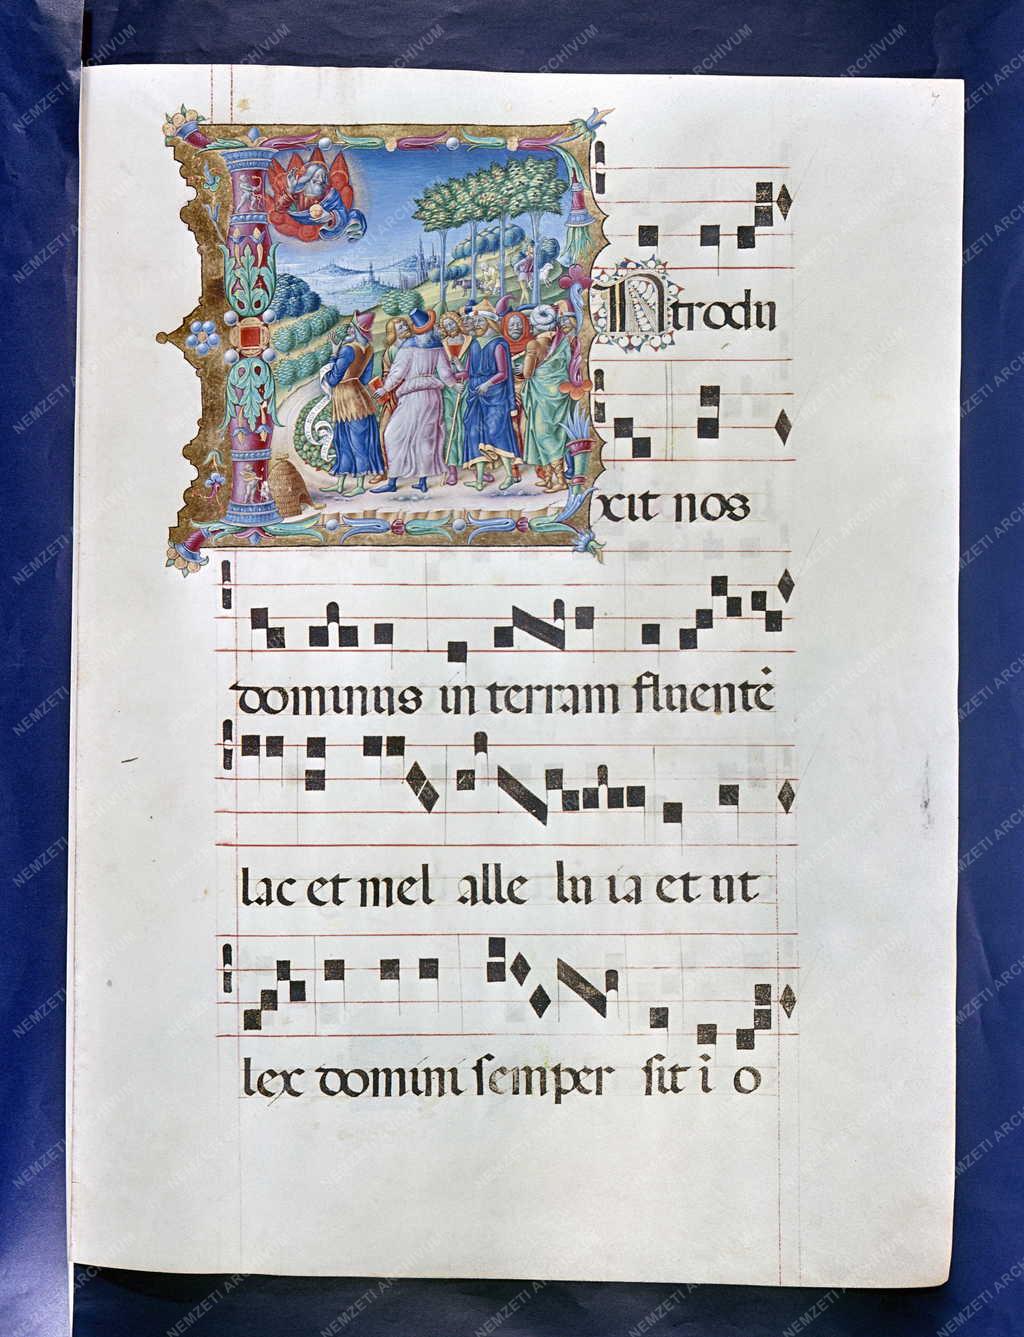 INtrodu
xit nos
dominus in terram fluentē
lac et mel alle lu ia et ut
lex domini semper sit i o
NEMZETI ARCHÍVUM